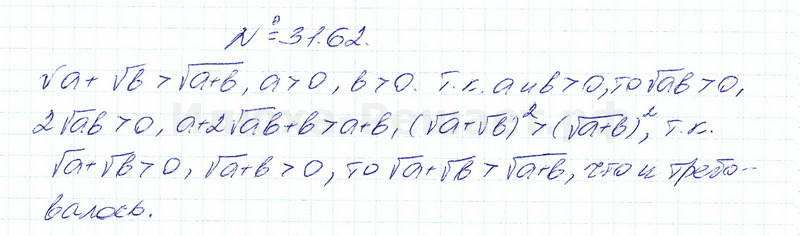 № 31.62.
√a + √b > √(a+b), a>0, b>0. т.к. a и b>0, то √ab>0,
2√ab>0, a+2√ab+b>a+b, (√a+√b)²>(√(a+b))², т.к.
√a+√b>0, √(a+b)>0, то √a+√b>√(a+b), что и требо-
валось.